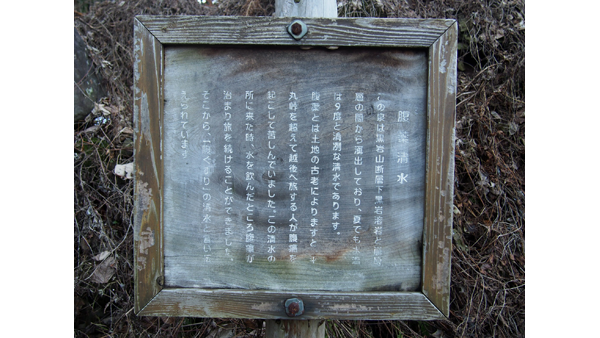 腹薬清水
この泉は黒岩山断層下黒岩溶岩と
層の間から湧出しており、夏でも水温
は9度と清冽な清水であります。
腹薬とは土地の古老によりますと、
丸峠を超えて越後へ旅する人が腹痛を
起こして苦しんでいました。この清水の
所に来た時、水を飲んだところ腹痛が
治まり旅を続けることができました。
そこから、「腹ぐすり」の清水と言い伝
えられています。